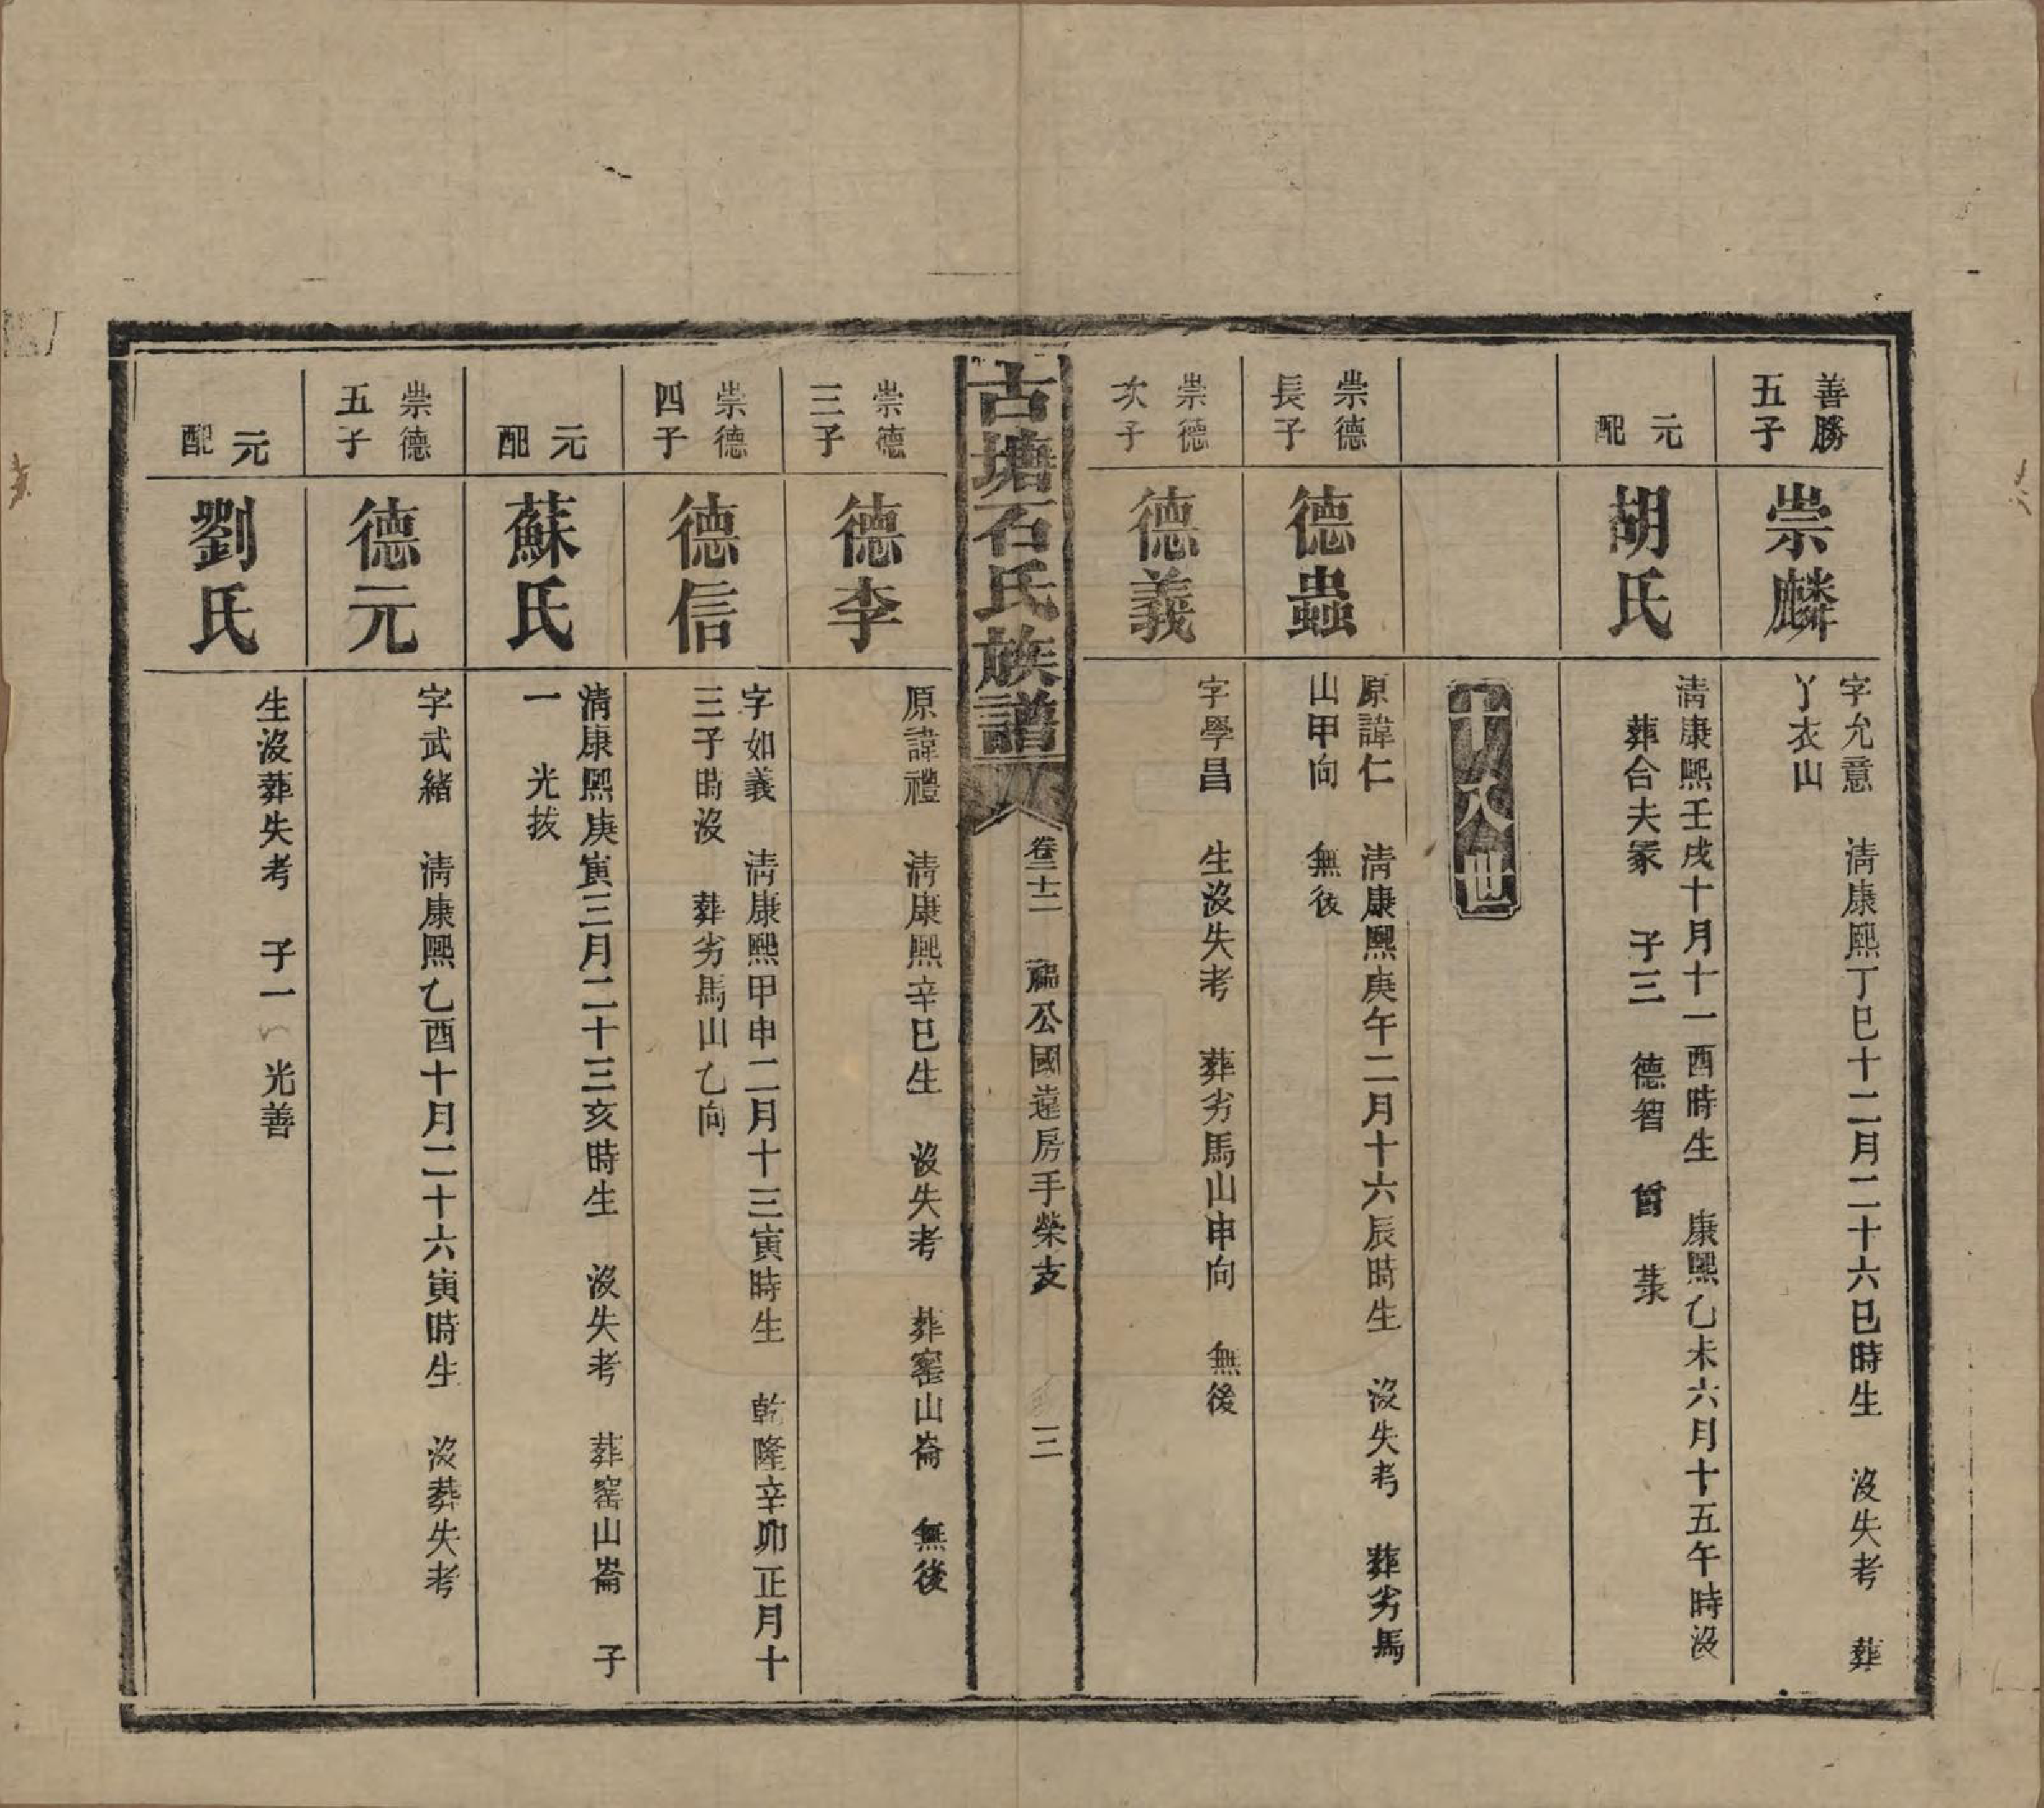 善勝
五子
崇麟
字允意　淸康熙丁巳十二月二十六巳時生　沒失考　葬
丫衣山
元
配
胡氏
淸康熙壬戌十月十一酉時生　康熙乙未六月十五午時沒
葬合夫冢　子三　德智
十八世
崇德
長子
德蟲
原諱仁　淸康熙庚午二月十六辰時生　沒失考　葬劣馬
山甲向　無後
崇德
次子
德義
字學昌　生沒失考　葬劣馬山申向　無後
古塘石氏族譜
卷三十二　公國遠房手榮支　三
崇德
三子
德李
原諱禮　淸康熙辛巳生　沒失考　葬窰山崙　無後
崇德
四子
德信
字如義　淸康熙甲申二月十三寅時生　乾隆辛卯正月十
三子時沒　葬劣馬山乙向
元
配
蘇氏
淸康熙庚寅三月二十三亥時生　沒失考　葬窰山崙　子
一　光拔
崇德
五子
德元
字武緒　淸康熙乙酉十月二十六寅時生　沒葬失考
元
配
劉氏
生沒葬失考　子一　光善